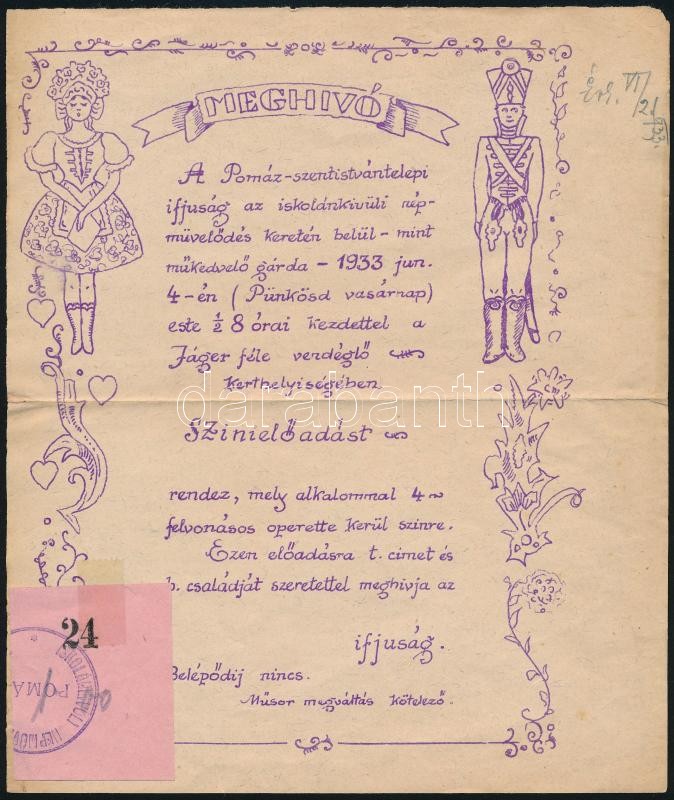 MEGHIVÓ
A Pomáz-szentistvántelepi
ifjuság az iskolánkivüli nép-
müvelődés keretén belül - mint
műkedvelő gárda - 1933 jun.
4-én (Pünkösd vasárnap)
este ½ 8 órai kezdettel a
Jáger féle vendéglő
kerthelyiségében
Szinielőadást
rendez, mely alkalommal 4
felvonásos operette kerül szinre.
Ezen előadásra t. cimet és
b. családját szeretettel meghivja az
ifjuság.
Belépődij nincs.
Műsor megváltás kötelező.
VI/
24
POMÁ
darabanth